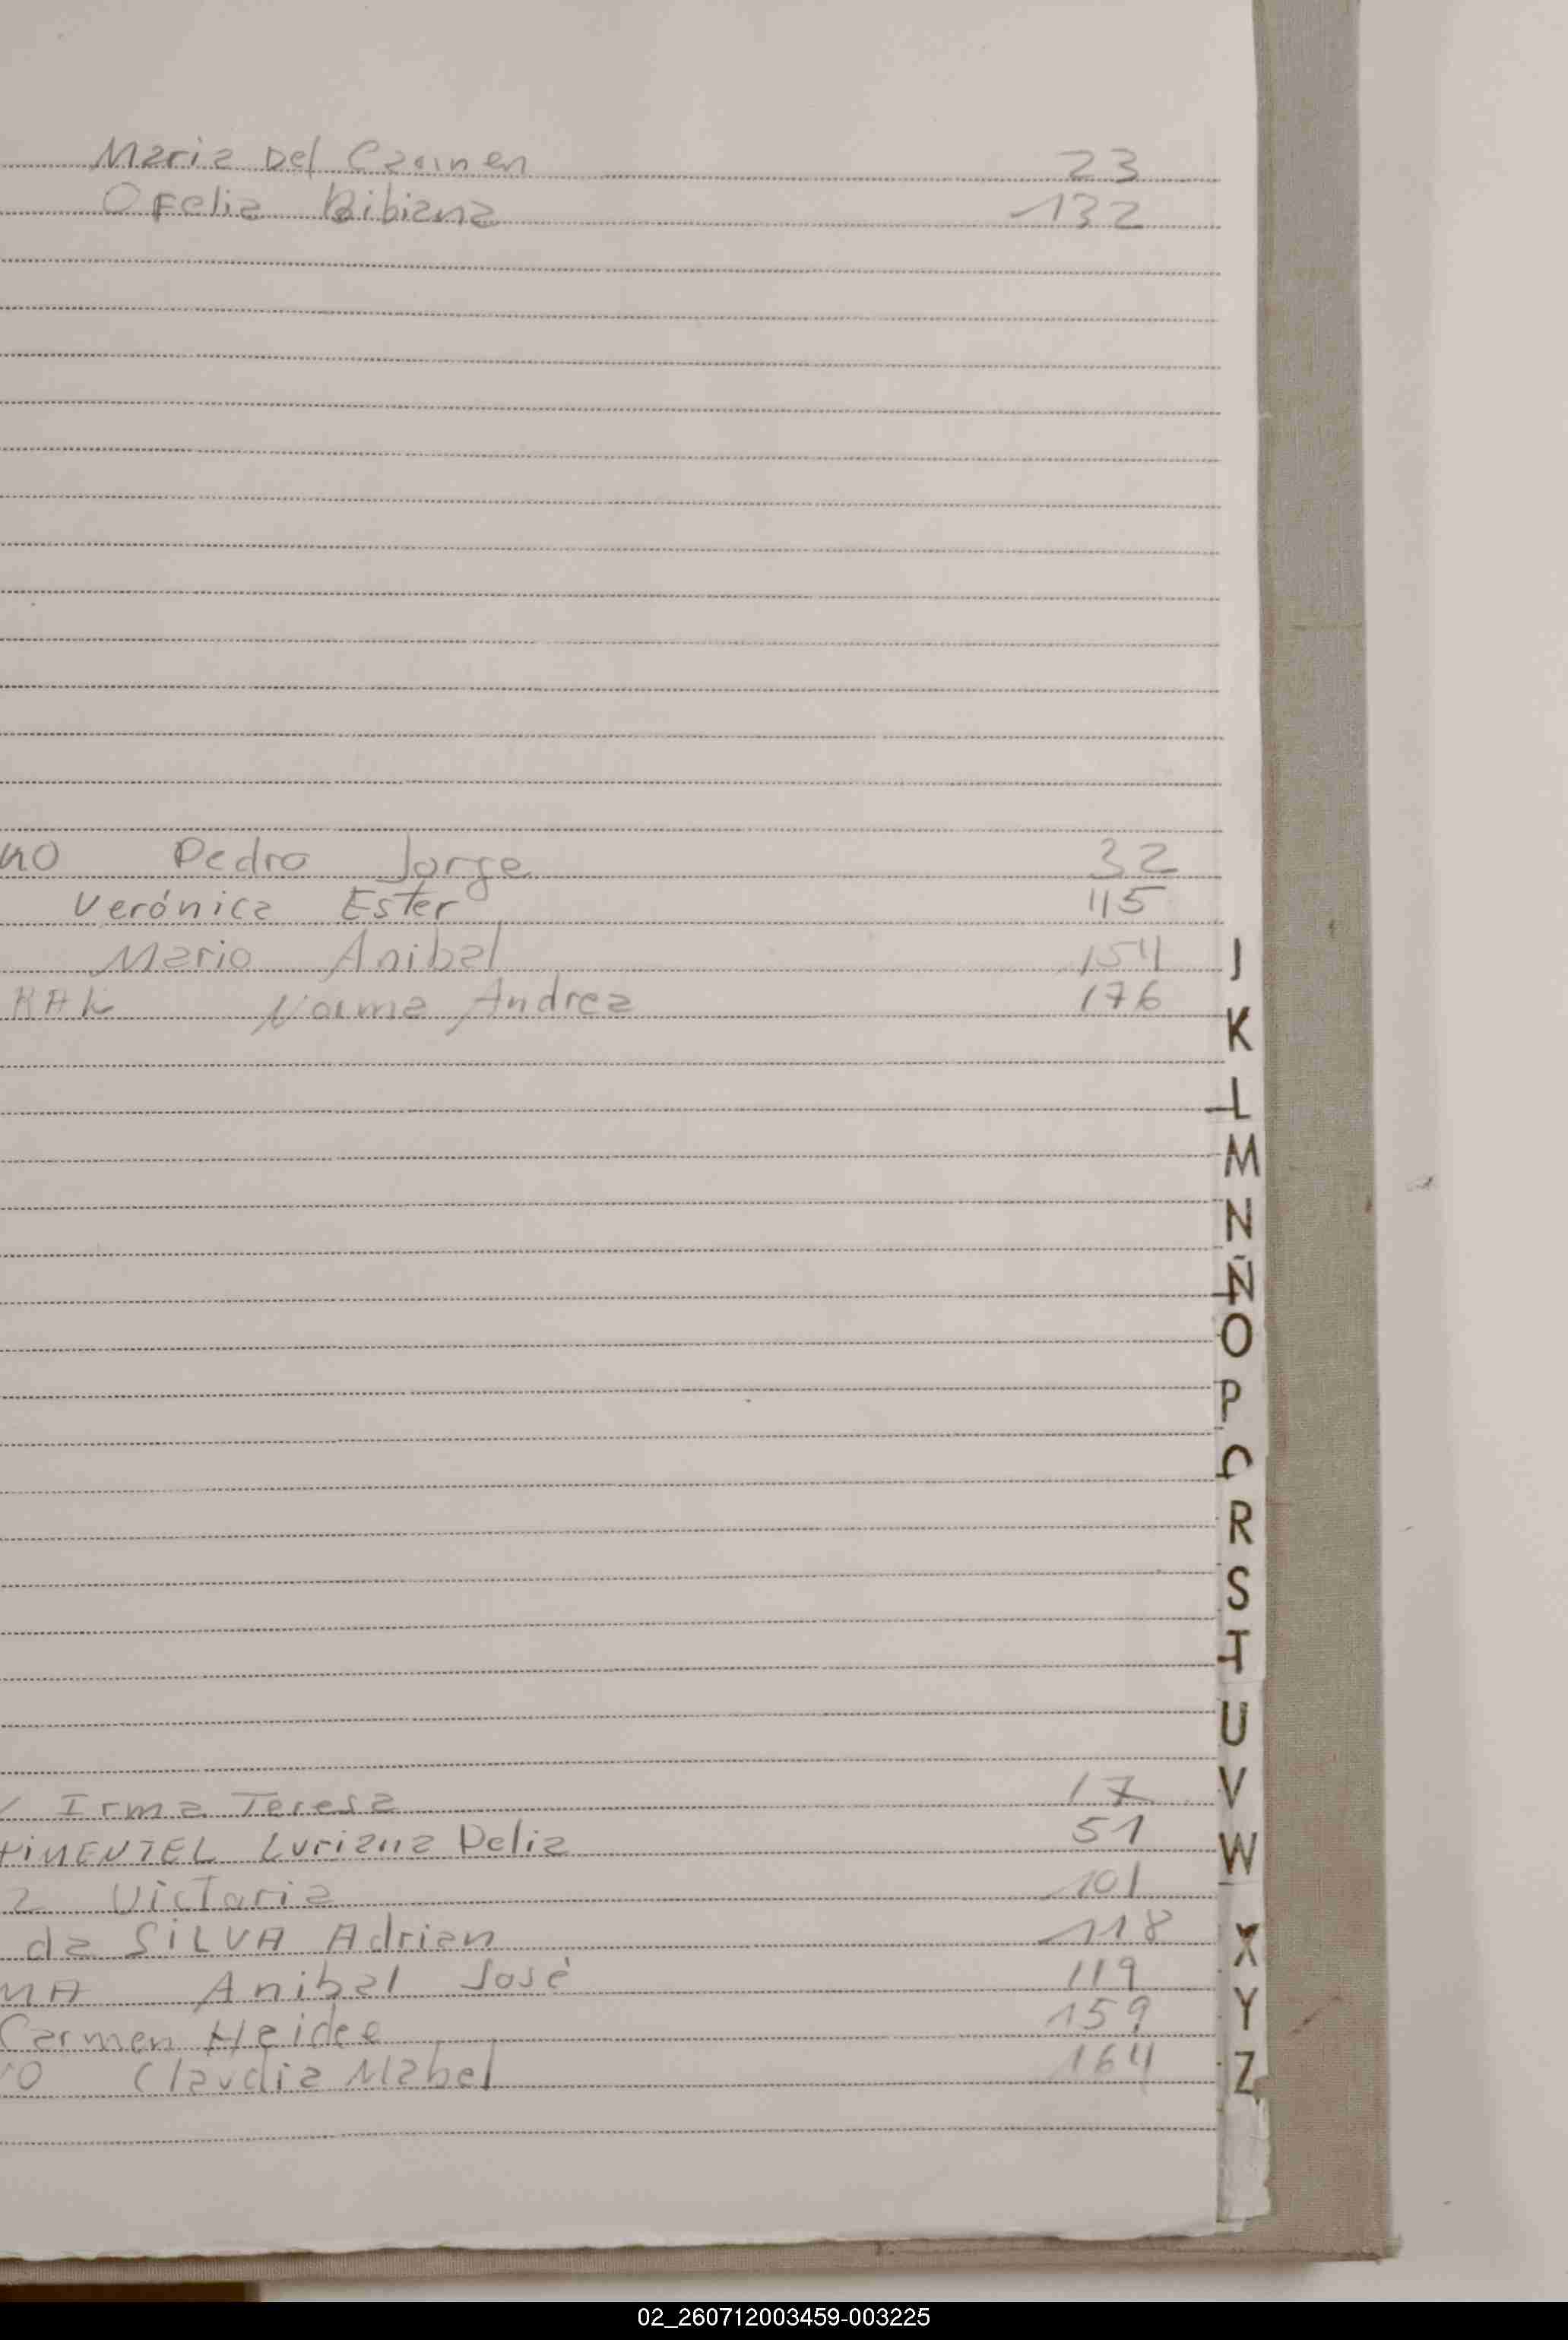 Maria Del Carmen 23
Ofelia Bibiana 132
no Pedro Jorge 32
Verónica Ester 115
Mario Anibal 154
RAK Norma Andrea 176
Irma Teresa 17
PiMENTEL Luriana Delia 51
Victoria 101
da SiLVA Adrian 118
MA Anibal José 119
Carmen Haidee 159
Claudia Mabel 164
J
K
L
M
N
Ñ
O
P
R
S
T
U
V
W
X
Y
Z
02_260712003459-003225